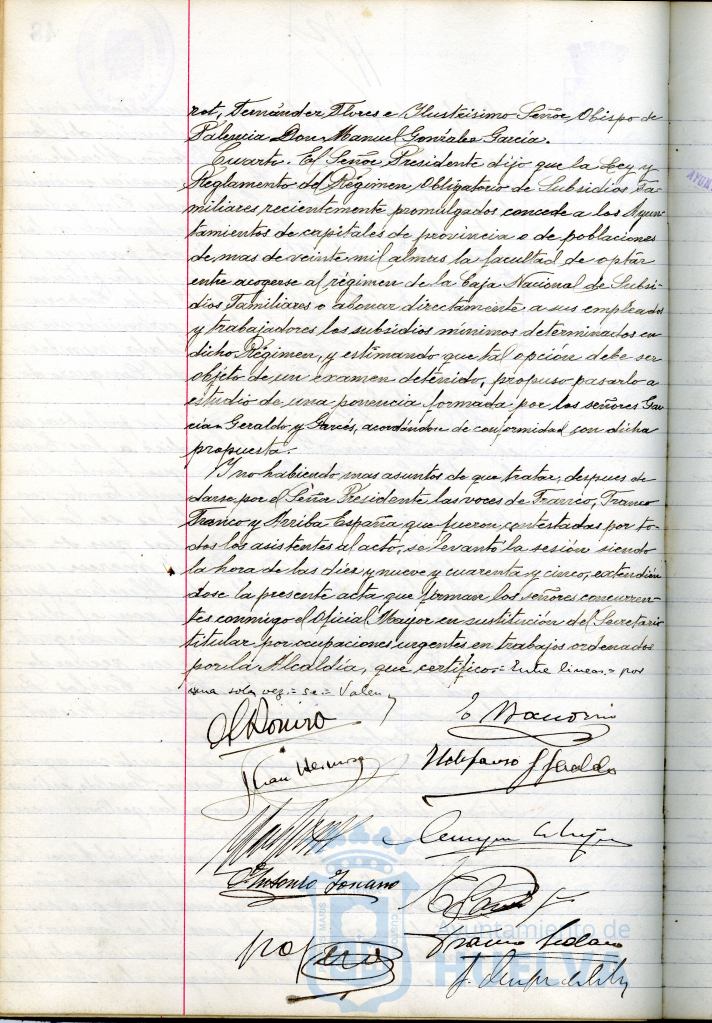 rot, Fernández Flores e Ilustrísimo Señor Obispo de
Palencia Don Manuel González García.
Cuarto. El Señor Presidente dijo que la Ley y
Reglamento del Régimen Obligatorio de Subsidios Fa-
miliares recientemente promulgados concede a los Ayun-
tamientos de capitales de provincia o de poblaciones
de mas de veinte mil almas la facultad de optar
entre acogerse al régimen de la Caja Nacional de Subsi-
dios Familiares o abonar directamente a sus empleados
y trabajadores los subsidios mínimos determinados en
dicho Régimen, y estimando que tal opción debe ser
objeto de un examen detenido, propuso pasarlo a
estudio de una ponencia formada por los señores Gar-
cia Geraldo y Garcés, acordándose de conformidad con dicha
propuesta.
Y no habiendo mas asuntos de que tratar, despues de
darse por el Señor Presidente las voces de Franco, Franco
Franco y Arriba España que fueron contestadas por to-
dos los asistentes al acto, se levantó la sesión siendo
la hora de las diez y nueve y cuarenta y cinco, extendién
dose la presente acta que firman los señores concurren-
tes conmigo el Oficial Mayor en sustitución del Secretario
titular por ocupaciones urgentes en trabajos ordenados
por la Alcaldía, que certifico.= Entre lineas = por
una sola vez = se = Valen
Juan Hermoso
Ildefonso G Geraldo
Antonio
Ayuntamiento de
HUELVA